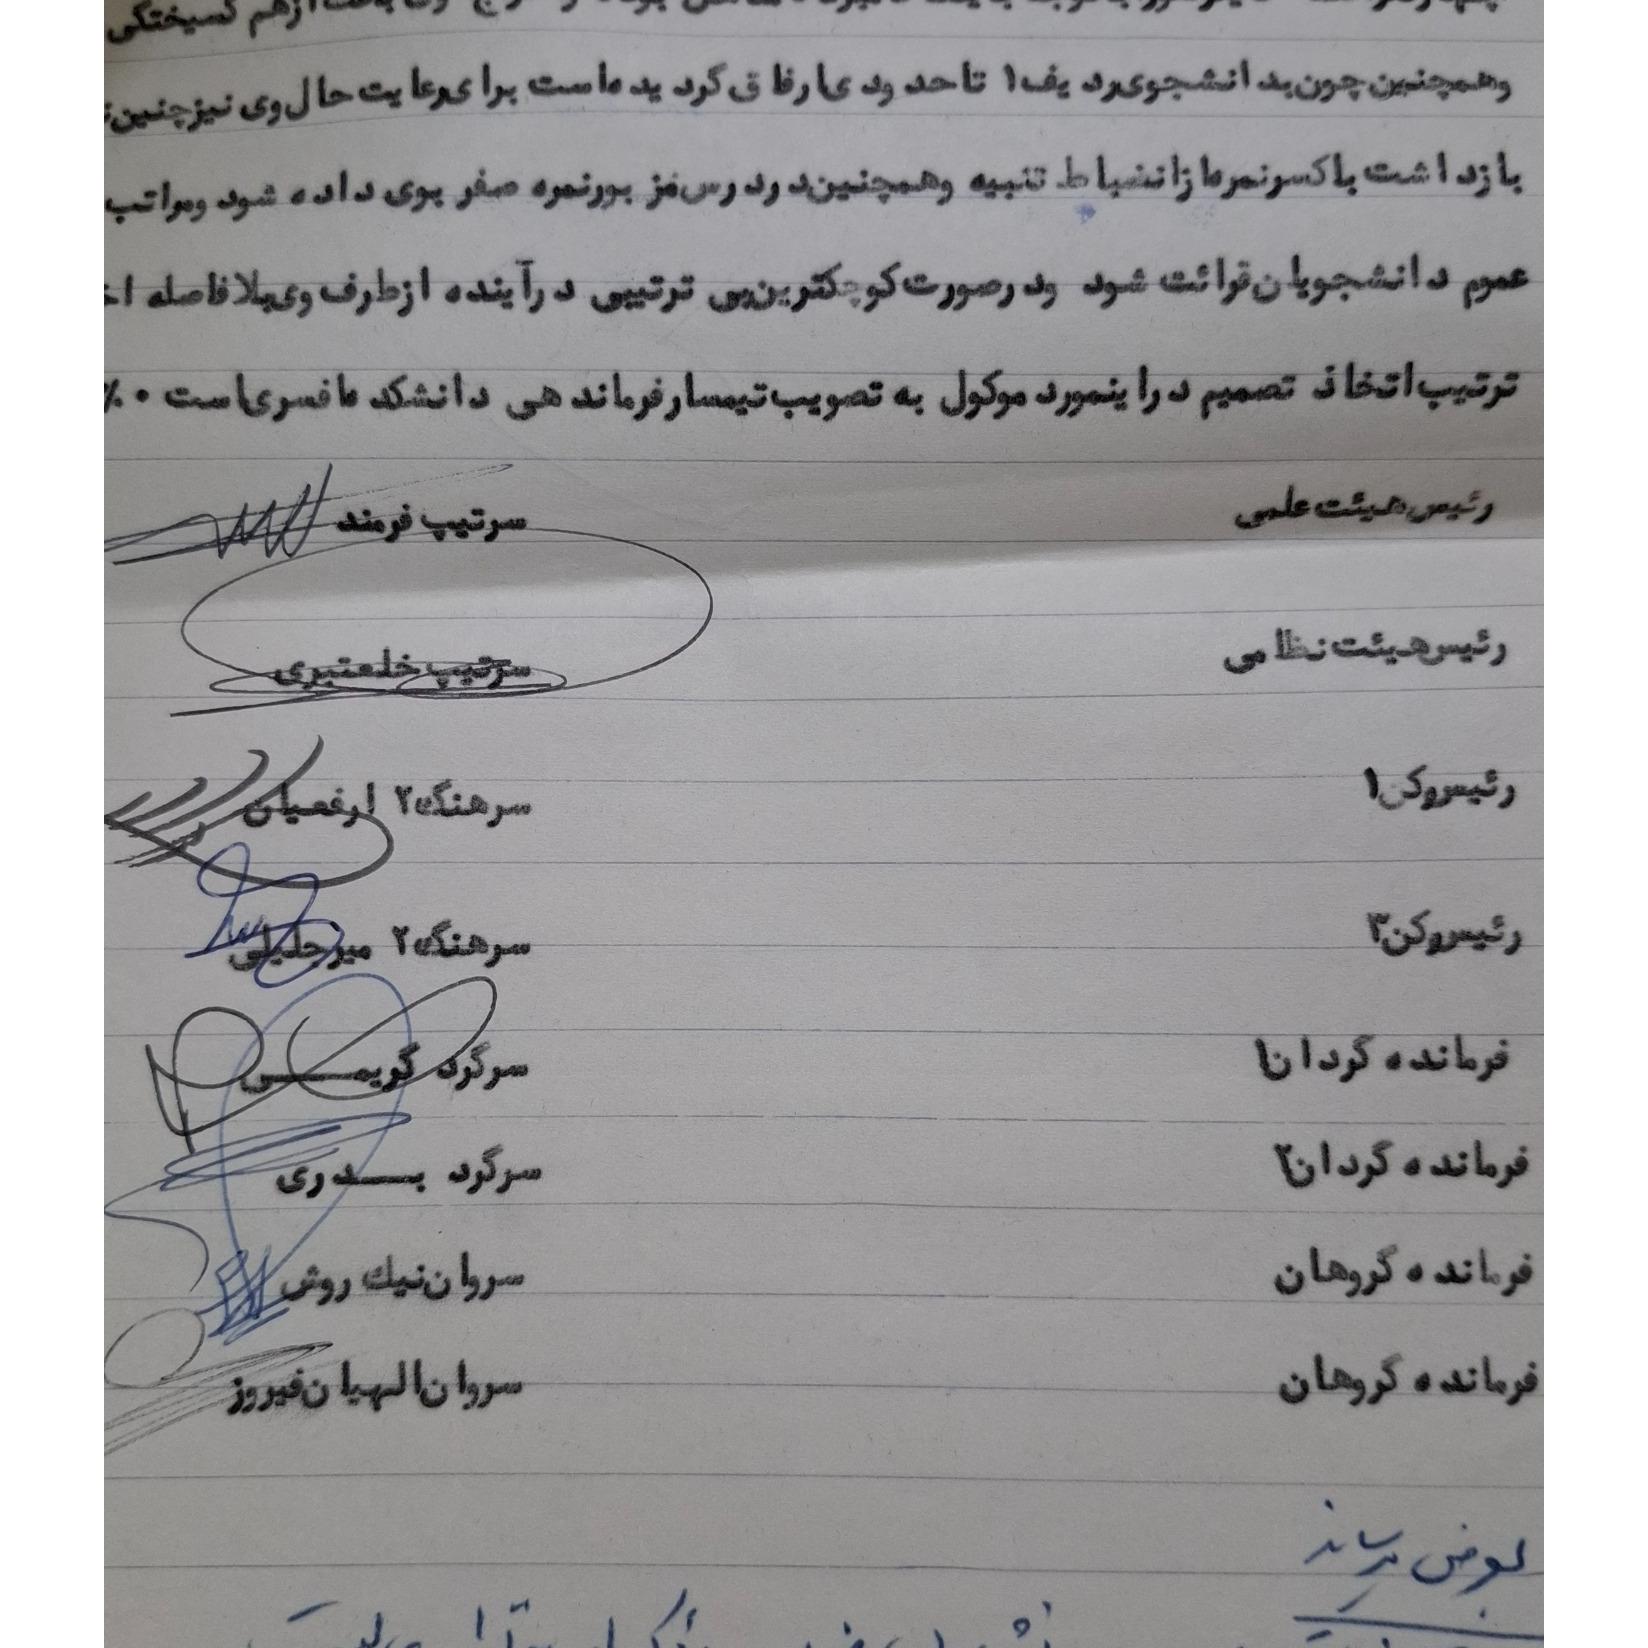 ازهم گسیختگی
وهمچنین چون بد انشجوی رد یف ۱ تاحد ود ی ارفاق گرد ید ه است برای رعایت حال وی نیز چنین
بازد اشت باکسر نمره از انضباط تنبیه وهمچنین د رد رس مز بور نمره صفر بوی د اد ه شود ومراتب
عموم د انشجویان قرائت شود ود رصورت کوچکترین بی ترتیبی د رآیند ه ازطرف وی بلافاصله
ترتیب اتخاذ تصمیم د راینمورد موکول به تصویب تیمسار فرماند هی د انشکد ه افسری است ۰٪
رئیس هیئت علمی سرتیپ فرمند
رئیس هیئت نظامی سرتیپ خلعتبری
رئیس رکن ۱ سرهنگ ۲ ارفعیان
رئیس رکن ۳ سرهنگ ۲ میرجلیلی
فرماند ه گرد ان ۱ سرگرد کریمی
فرماند ه گرد ان ۲ سرگرد بدری
فرماند ه گروهان سروان نیک روش
فرماند ه گروهان سروان الهیان فیروز
بعرض برساند